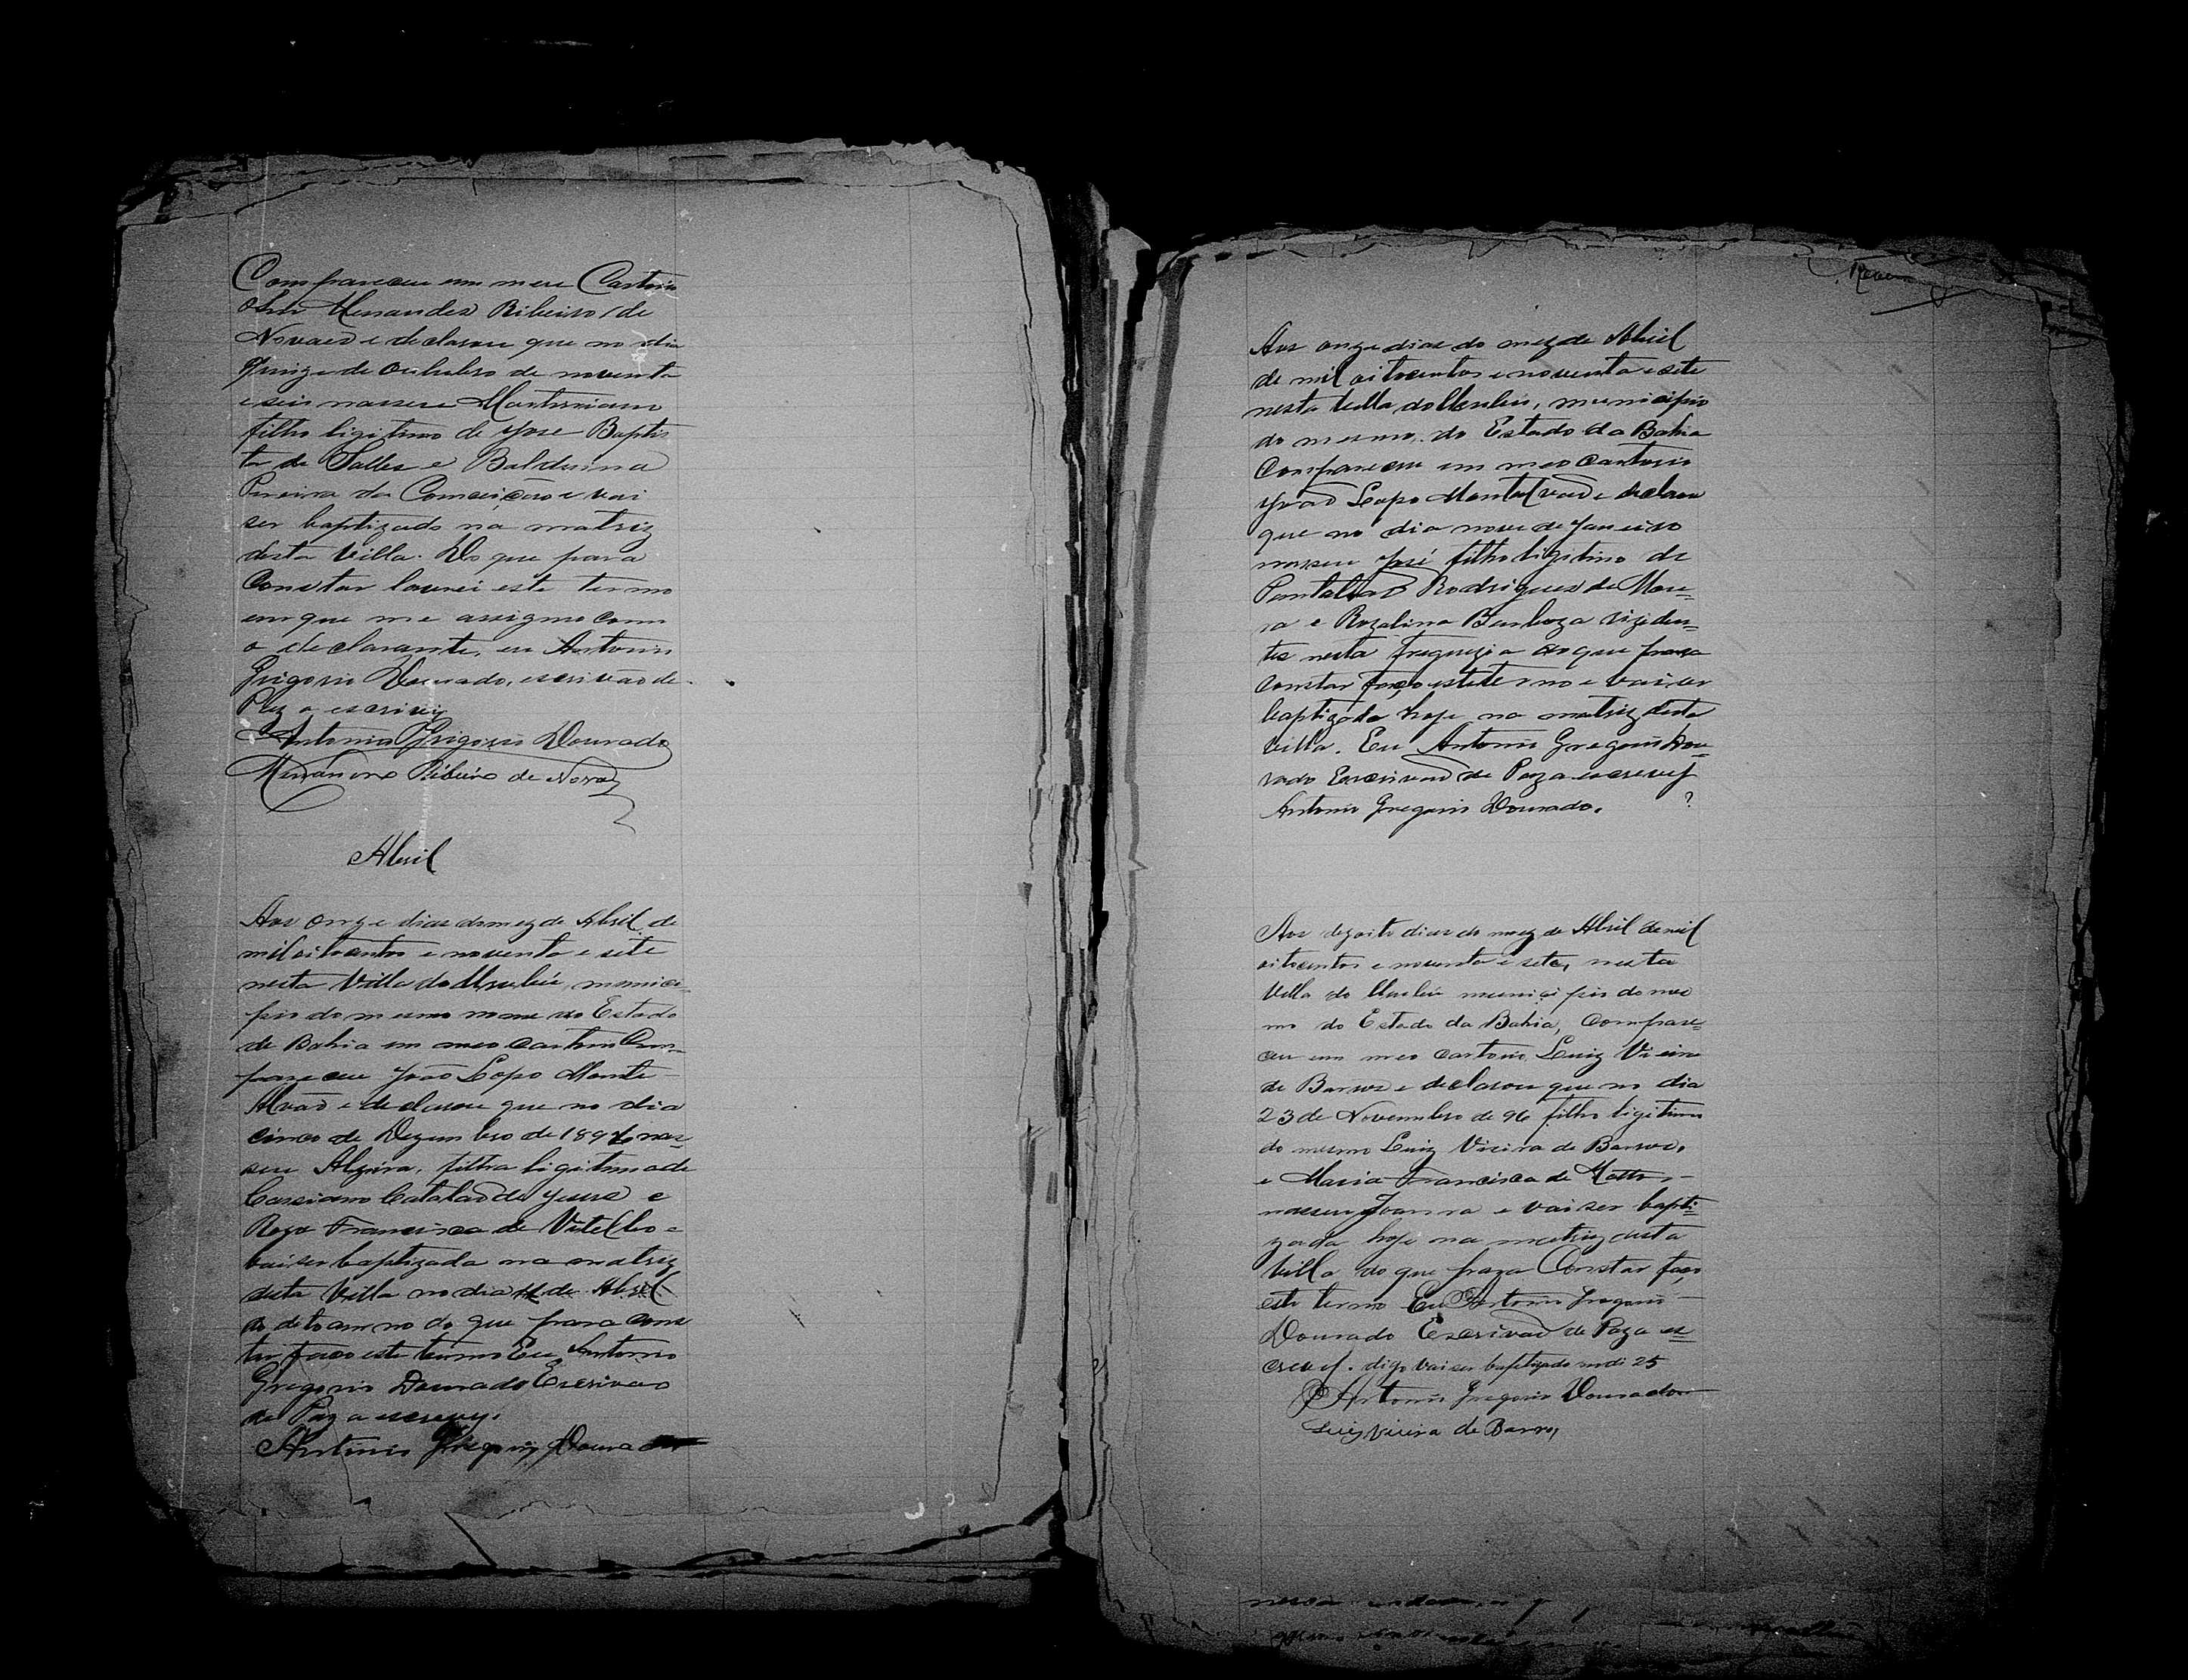 Compareceu em meu Cartorio
o Snr Menandes Ribeiro de
Novaes e declarou que no dia
quinze de Outubro de noventa
e seis nasceu Martiniano
filho ligitimo de Jose Baptis
ta de Salles e Balduina
Pereira da Conceição e vai
ser baptizado na matriz
desta Villa. Do que para
Constar lavrei este termo
em que me assigno com
o declarante, eu Antonio
Grigorio Dourado, escrivão de
Paz o escrivy
Antonio Grigorio Dourado
Ribeiro de Novaes
Abril
Aos onze dias do mez de Abril de
mil oitocentos e noventa e sete
nesta Villa do Urubú, munici
pio do mesmo nome do Estado
da Bahia em meo cartorio Com-
pareceu João Lopo Monte-
Alvão e declarou que no dia
cinco de Dezembro de 1896 nas
ceu Alzira, filha ligitima de
Cassiano Catalão de Jesus e
Roza Francisca de e
vai ser baptizada na matriz
desta Villa no dia 11 de Abril
do dito anno do que para cons
tar faço este termo Eu Antonio
Gregorio Dourado Escrivão
de Paz a escrevy.
Antonio Gregorio Dourado
Aos onze dias do mez de Abril
de mil oitocentos e noventa e sete
nesta Villa do Urubú, municipio
do mesmo. do Estado da Bahia
Compareceu em meo cartorio
João Lopo Montalvão e declarou
que no dia nove de Janeiro
nasceu José filho ligitimo de
Pantalião Rodrigues de Mou-
ra e Rozalina Barboza riziden=
tes nesta freguezia do que para
constar faço este termo e vai ser
baptizado hoje na matriz desta
Villa. Eu Antonio Gregorio Dou-
rado Escrivão de Paz a escrevy
Antonio Gregorio Dourado.
Aos dezoito dias do mez de Abril de mil
oitocentos e noventa e sete, nesta
Villa do Urubú municipio do mes
mo do Estado da Bahia, Compare=
ceu em meo cartorio Luiz Vieira
de Barros e declarou que no dia
23 de Novembro de 96 filha ligitima
do mesmo Luiz Vieira de Barros,
e Maria Francisca de Mattos-
nasceu Joanna e vai ser bapti=
zada hoje na matriz desta
Villa do que para Constar faço
este termo Eu Antonio Gregorio
Dourado Escrivão de Paz a es
crevy. digo vai ser baptizado no di 25
Antonio Gregorio Dourado
Luiz Vieira de Barros